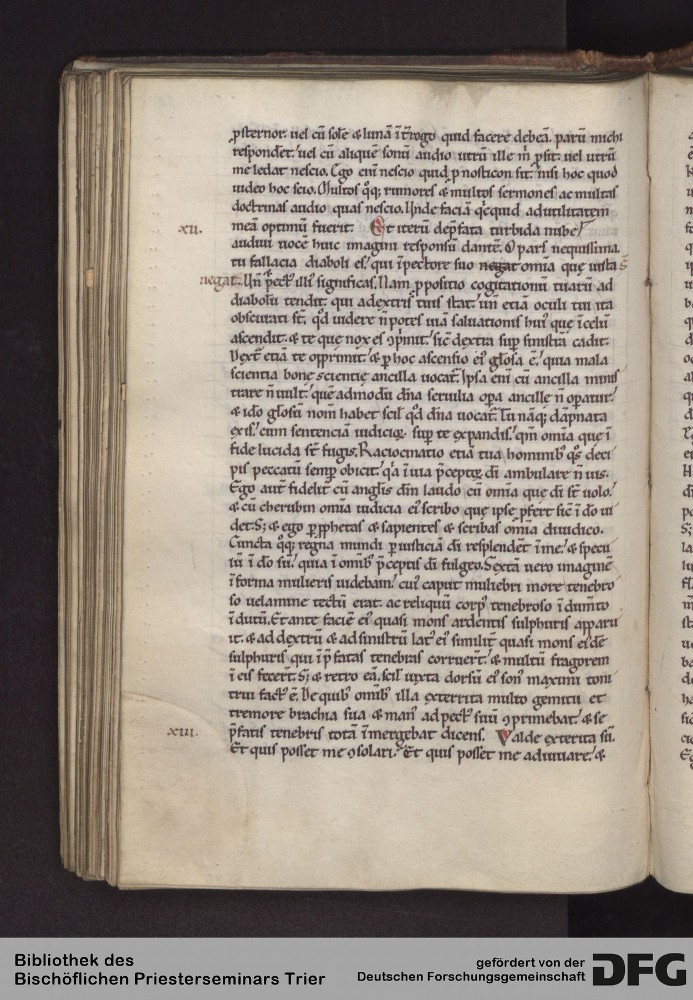 ꝑsternor. uel cū sole & lunā īt̄rogo quid facere debeā. parū michi
respondet.' uel cū aliquē sonū audio utrū ille m̄ ꝓsit. uel utrū
me ledat nescio. Ego eni nescio quid pnosticon sit. nisi hoc quod
uideo hoc scio. Multos qq; rumores & multos sermones ac multas
doctrinas audio quas nescio. Unde faciā qcquid ad utilitatem
xii. meā optimū fuerit. Et iterū de p̄fata turbida nube
audiui uocē huic imagini responsū dantē. O pars nequissima.
tu fallacia diaboli es. qui ī pectore suo negat omīa que iusta s̄
negat. Un̄ peccatū illi significas. Nam ꝓpositio cogitationū tuarū ad
diabolū tendit. qui a dextris tuis stat. un̄ etiā oculi tui ita
obscurati st̄. qd uidere n̄ potes uiā saluationis hui' que ī celū
ascendit. & te que nox es ꝯp̄mit. sic dextra sup sinistrā cadit.
Dext̄ etiā te opprimit. & ꝑ hoc ascensio ei' gl̄osa ē. quia mala
scientia bone scientie ancilla uocat̄. Ipsa eni cū ancilla minis
trare n̄ uult. que admodū dn̄a seruilia opa ancille n̄ opatur.
& ido gl̄osū nom̄ habet scil̄ qd dn̄a uocat̄. Tu nāq; dāpnata
exis. cum sentenciā iudicioꝝ sup te expandis. qm̄ omīa que ī
fide lucida st̄ fugis. Raciocinatio etiā tua hominib; qs deci
pis peccatū semp obicit. qa ī uia p̄ceptoꝝ dī ambulare n̄ uis.
Ego aut̄ fidelit̄ cū angl̄is dn̄m laudo cū omīa que dī st̄ uolo.
& cū cherubin omīa iudicia ei' scribo que ipse ꝓfert sic' ī do ui
det. S; & ego ꝑ ꝓphetas & sapientes & scribas omīa diiudico.
Cuncta qq; regna mundi ꝑ iusticiā dī resplendēt ī me. & specu
lū ī do sū. quia ī omib; p̄ceptis dī fulgeo. Sextā uero imaginē
ī forma mulieris uidebam. cui' caput muliebri more tenebro
so uelamine tectū erat. ac reliquū corp' tenebroso īdumto
īdutū. Et ante faciē ei' quasi mons ardentis sulphuris apparu
it. & ad dextrū & ad sinistrū lat' ei' similit̄ quasi mons ei'dē
sulphuris qui ī p̄fatas tenebras corruert̄. & multū fragorem
ī eis fecert̄. S; & retro eā. scil̄ iuxta dorsū ei' son' maximi toni
trui fact' ē. De quib; omib; illa exterrita multo gemitu et
tremore brachia sua & man' ad pect' suū ꝯprimebat. & se
xiii. p̄fatis tenebris totā īmergebat dicens. Valde exterita sū.
Et quis posset me ꝯsolari. Et quis posset me adiuuare. &
Bibliothek des
Bischöflichen Priesterseminars Trier
gefördert von der
Deutschen Forschungsgemeinschaft
DFG